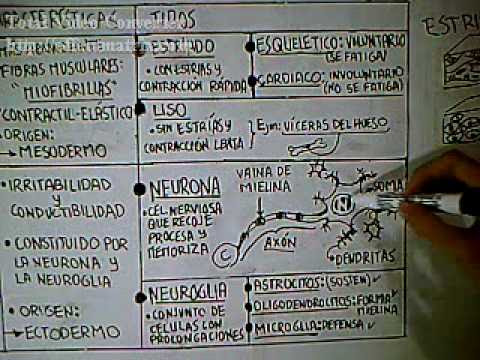 CARACTERÍSTICAS
TIPOS
FIBRAS MUSCULARES:
"MIOFIBRILLAS"
CONTRACTIL-ELÁSTICO
ORIGEN:
→ MESODERMO
ESTRIADO
• CON ESTRÍAS Y
CONTRACCIÓN RÁPIDA
ESQUELÉTICO: VOLUNTARIO
(SE FATIGA)
CARDIACO: INVOLUNTARIO
(NO SE FATIGA)
LISO
• SIN ESTRÍAS Y
CONTRACCIÓN LENTA
Ejm: VÍCERAS DEL HUESO
• IRRITABILIDAD
Y
CONDUCTIBILIDAD
• CONSTITUIDO POR
LA NEURONA Y
LA NEUROGLIA
• ORIGEN:
→ ECTODERMO
NEURONA
CEL. NERVIOSA
QUE RECOJE
PROCESA Y
MEMORIZA
VAINA DE
MIELINA
SOMA
N
C
AXÓN
DENDRITAS
NEUROGLIA
• CONJUNTO DE
CELULAS CON
PROLONGACIONES
ASTROCITOS: (SOSTEN)
OLIGODENDROCITOS: FORMA
MIELINA
MICROGLIA: DEFENSA
ESTRI